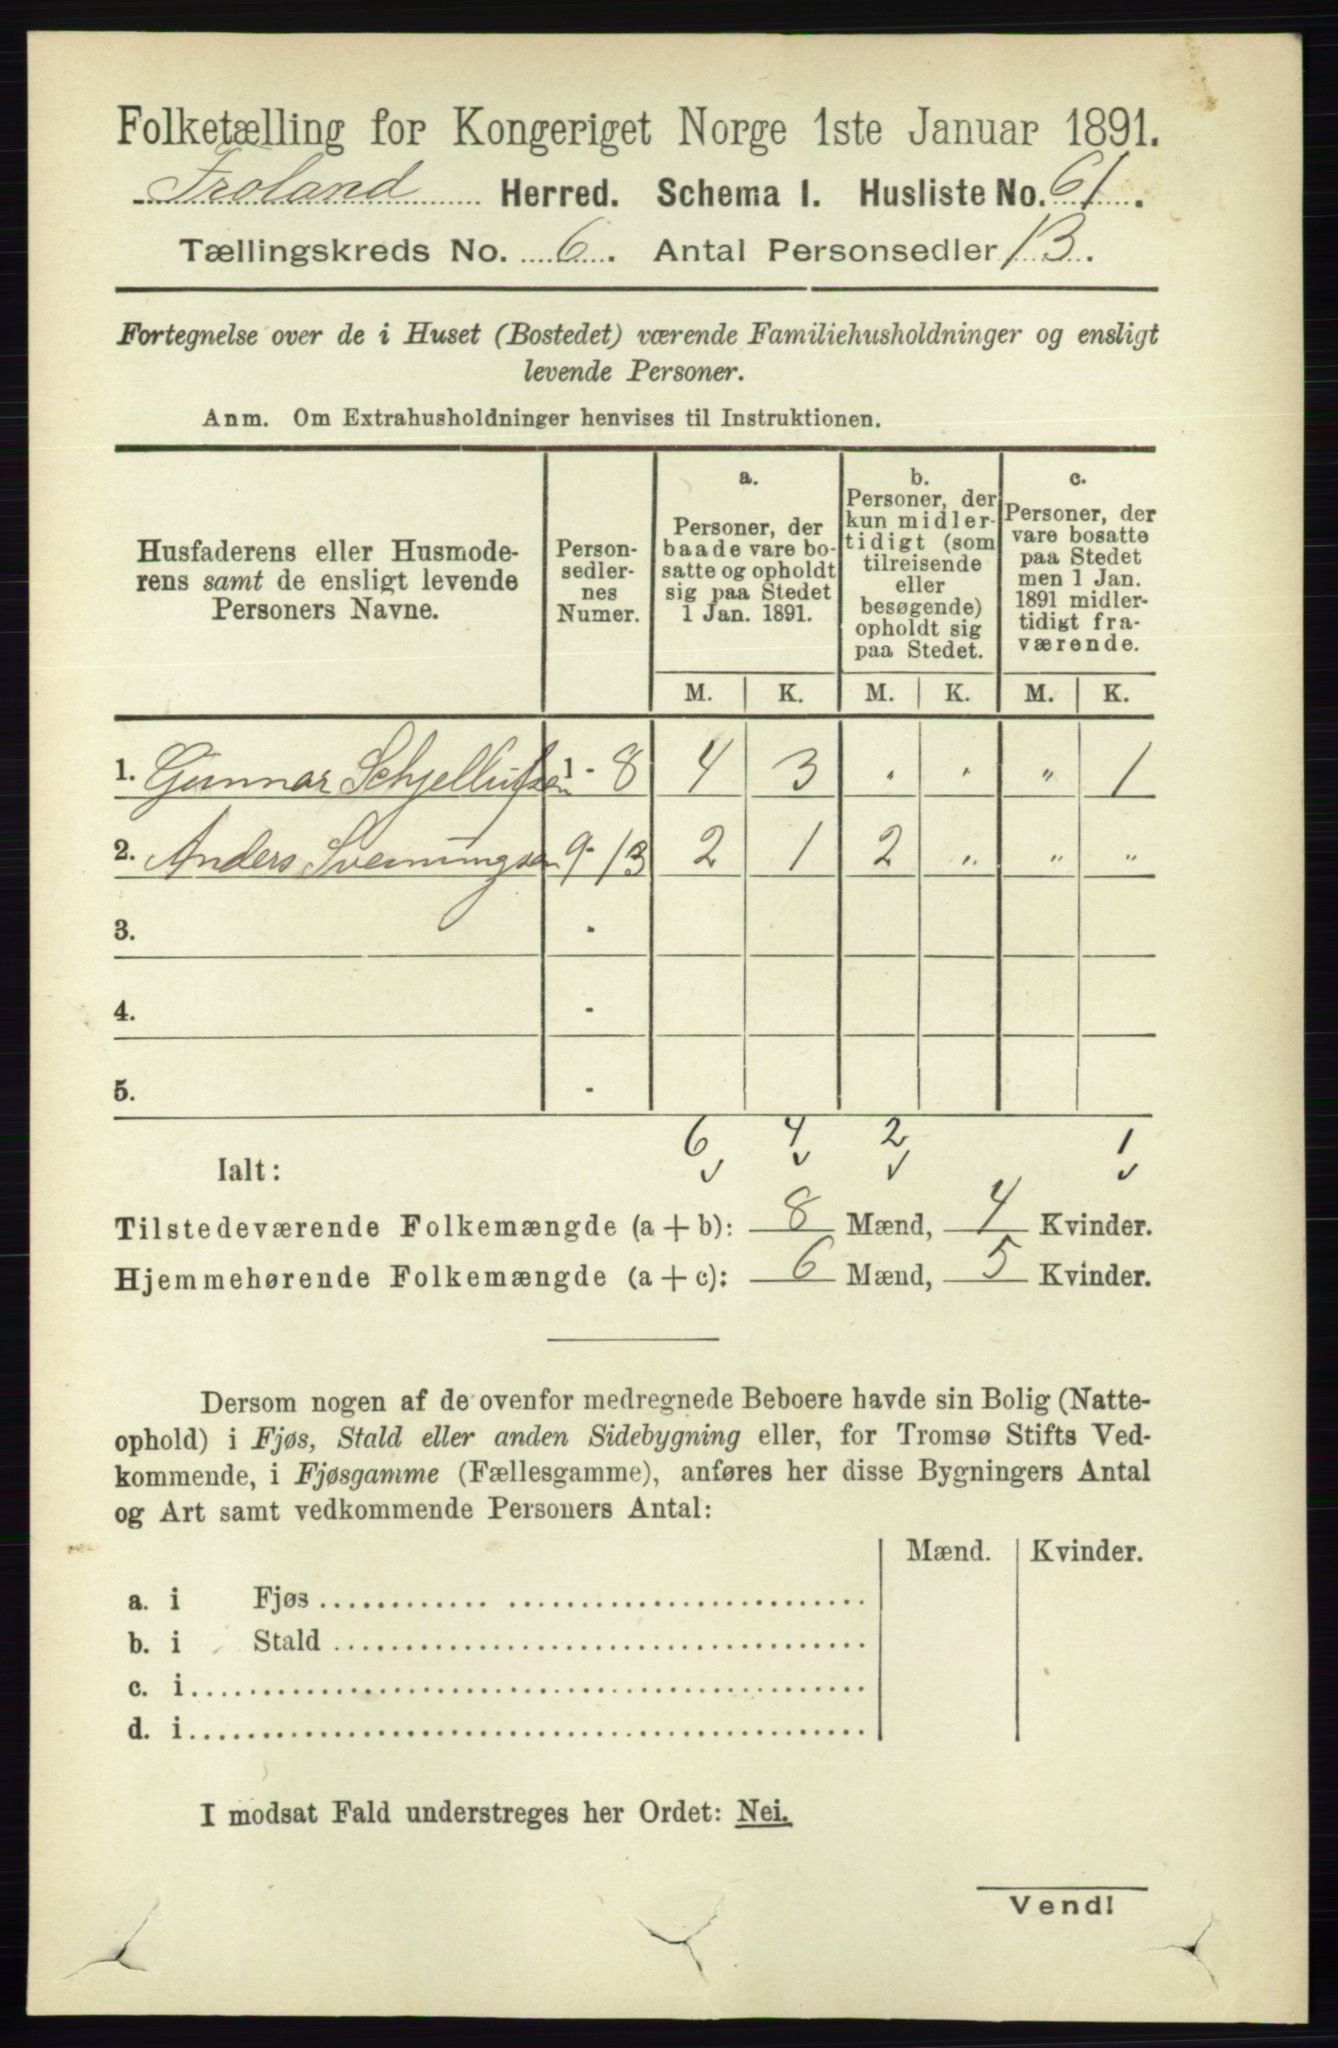 Folketælling for Kongeriget Norge 1ste Januar 1891.
Froland Herred. Schema I. Husliste No. 61.
Tællingskreds No. 6. Antal Personsedler 13.
Fortegnelse over de i Huset (Bostedet) værende Familiehusholdninger og ensligt
levende Personer.
Anm. Om Extrahusholdninger henvises til Instruktionen.
Husfaderens eller Husmode-
rens samt de ensligt levende
Personers Navne.
Person-
sedler-
nes
Numer.
a.
Personer, der
baade vare bo-
satte og opholdt
sig paa Stedet
1 Jan. 1891.
b.
Personer, der
kun midler-
tidigt (som
tilreisende
eller
besøgende)
opholdt sig
paa Stedet.
c.
Personer, der
vare bosatte
paa Stedet
men 1 Jan.
1891 midler-
tidigt fra-
værende.
M. K. M. K. M. K.
1. Gunnar 1 - 8 4 3 " " " 1
2. Anders Sveinungsen 9 - 13 2 1 2 " " "
3. -
4. -
5. -
6 4 2 1
Ialt:
Tilstedeværende Folkemængde (a + b): 8 Mænd, 4 Kvinder.
Hjemmehørende Folkemængde (a + c): 6 Mænd, 5 Kvinder.
Dersom nogen af de ovenfor medregnede Beboere havde sin Bolig (Natte-
ophold) i Fjøs, Stald eller anden Sidebygning eller, for Tromsø Stifts Ved-
kommende, i Fjøsgamme (Fællesgamme), anføres her disse Bygningers Antal
og Art samt vedkommende Personers Antal:
Mænd. Kvinder.
a. i Fjøs
b. i Stald
c. i
d. i
I modsat Fald understreges her Ordet: Nei.
Vend!